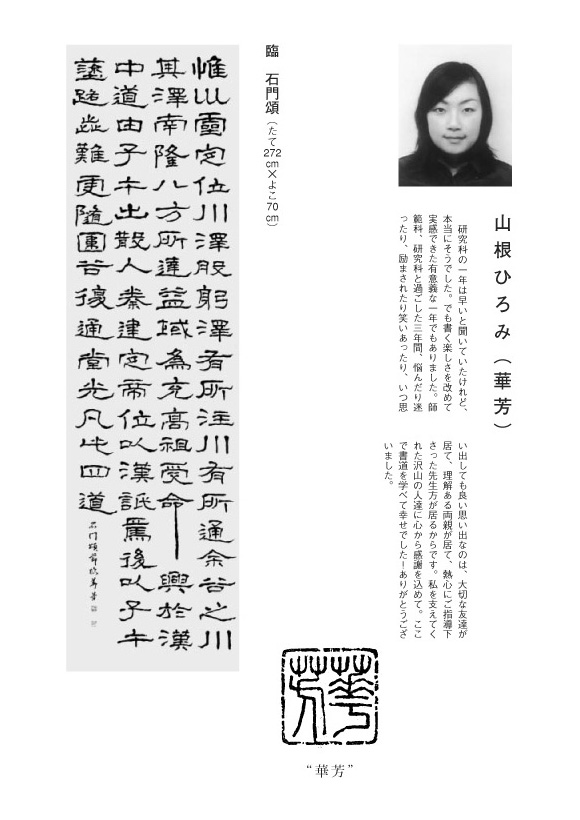 山根ひろみ（華芳）
研究科の一年は早いと聞いていたけれど、
本当にそうでした。でも書く楽しさを改めて
実感できた有意義な一年でもありました。師
範科、研究科と過ごした三年間、悩んだり迷
ったり、励まされたり笑いあったり、いつ思
い出しても良い思い出なのは、大切な友達が
居て、理解ある両親が居て、熱心にご指導下
さった先生方が居るからです。私を支えてく
れた沢山の人達に心から感謝を込めて。ここ
で書道を学べて幸せでした！ありがとうござ
いました。
臨　石門頌（たて272cm×よこ70cm）
惟巛靈定位川澤股躬澤有所注川有所通余谷之川
其澤南隆八方所達益域為充高祖受命興於漢
中道由子午出散人秦建定帝位以漢詆焉後以子午
塗路歮難更隨圍谷復通堂光凡此四道
華芳
“華芳”